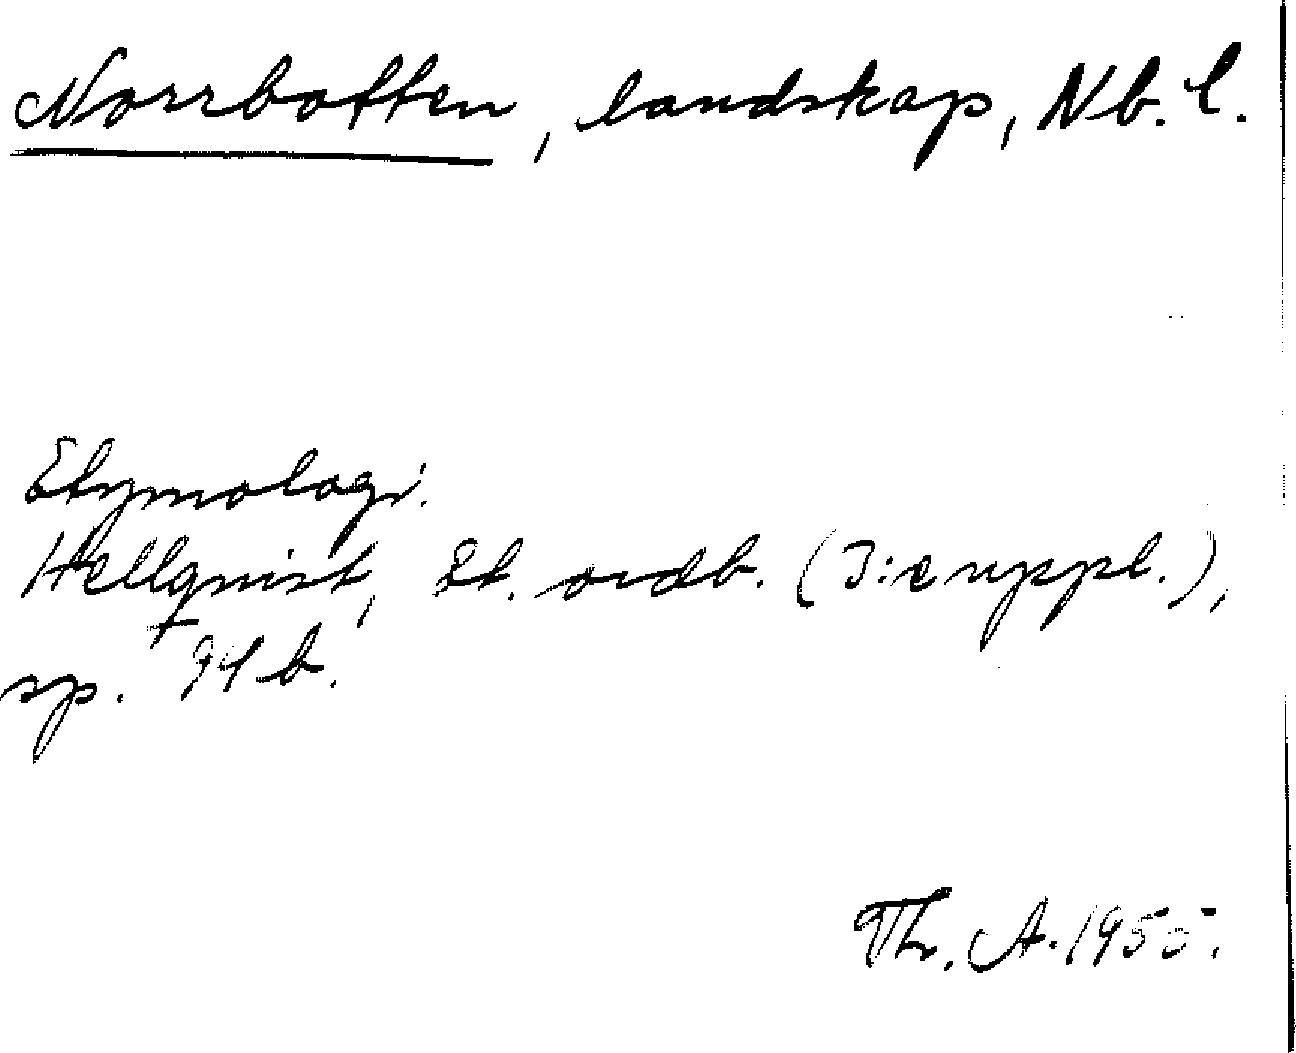 Norrbotten, landskap, Nb. l.
Etymologi.
Hellquist, Et. ordb. (3:e uppl.),
sp. 94 b.
Th. A. 1955.